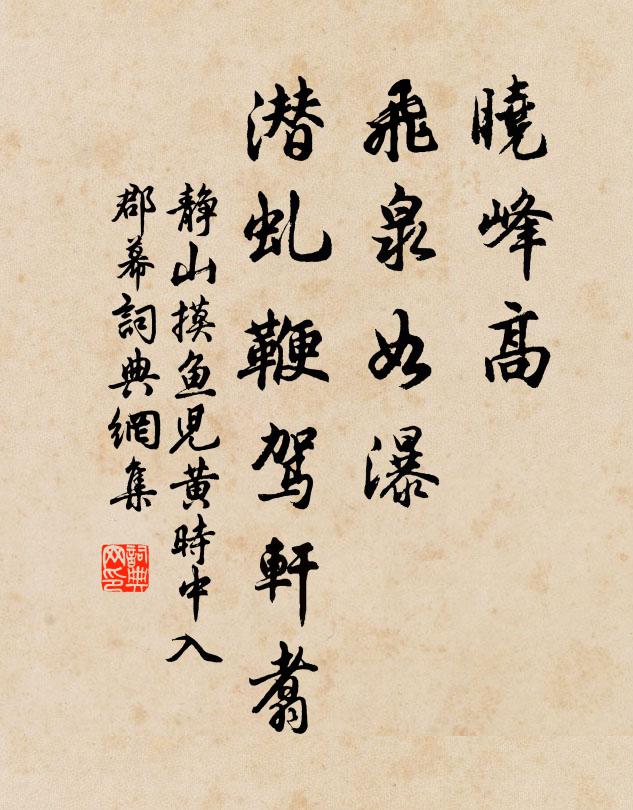 曉峰高
飛泉如瀑
潜虬鞭駕軒翥
静山摸魚児黄時中入
郡幕詞典網集
詞典网印